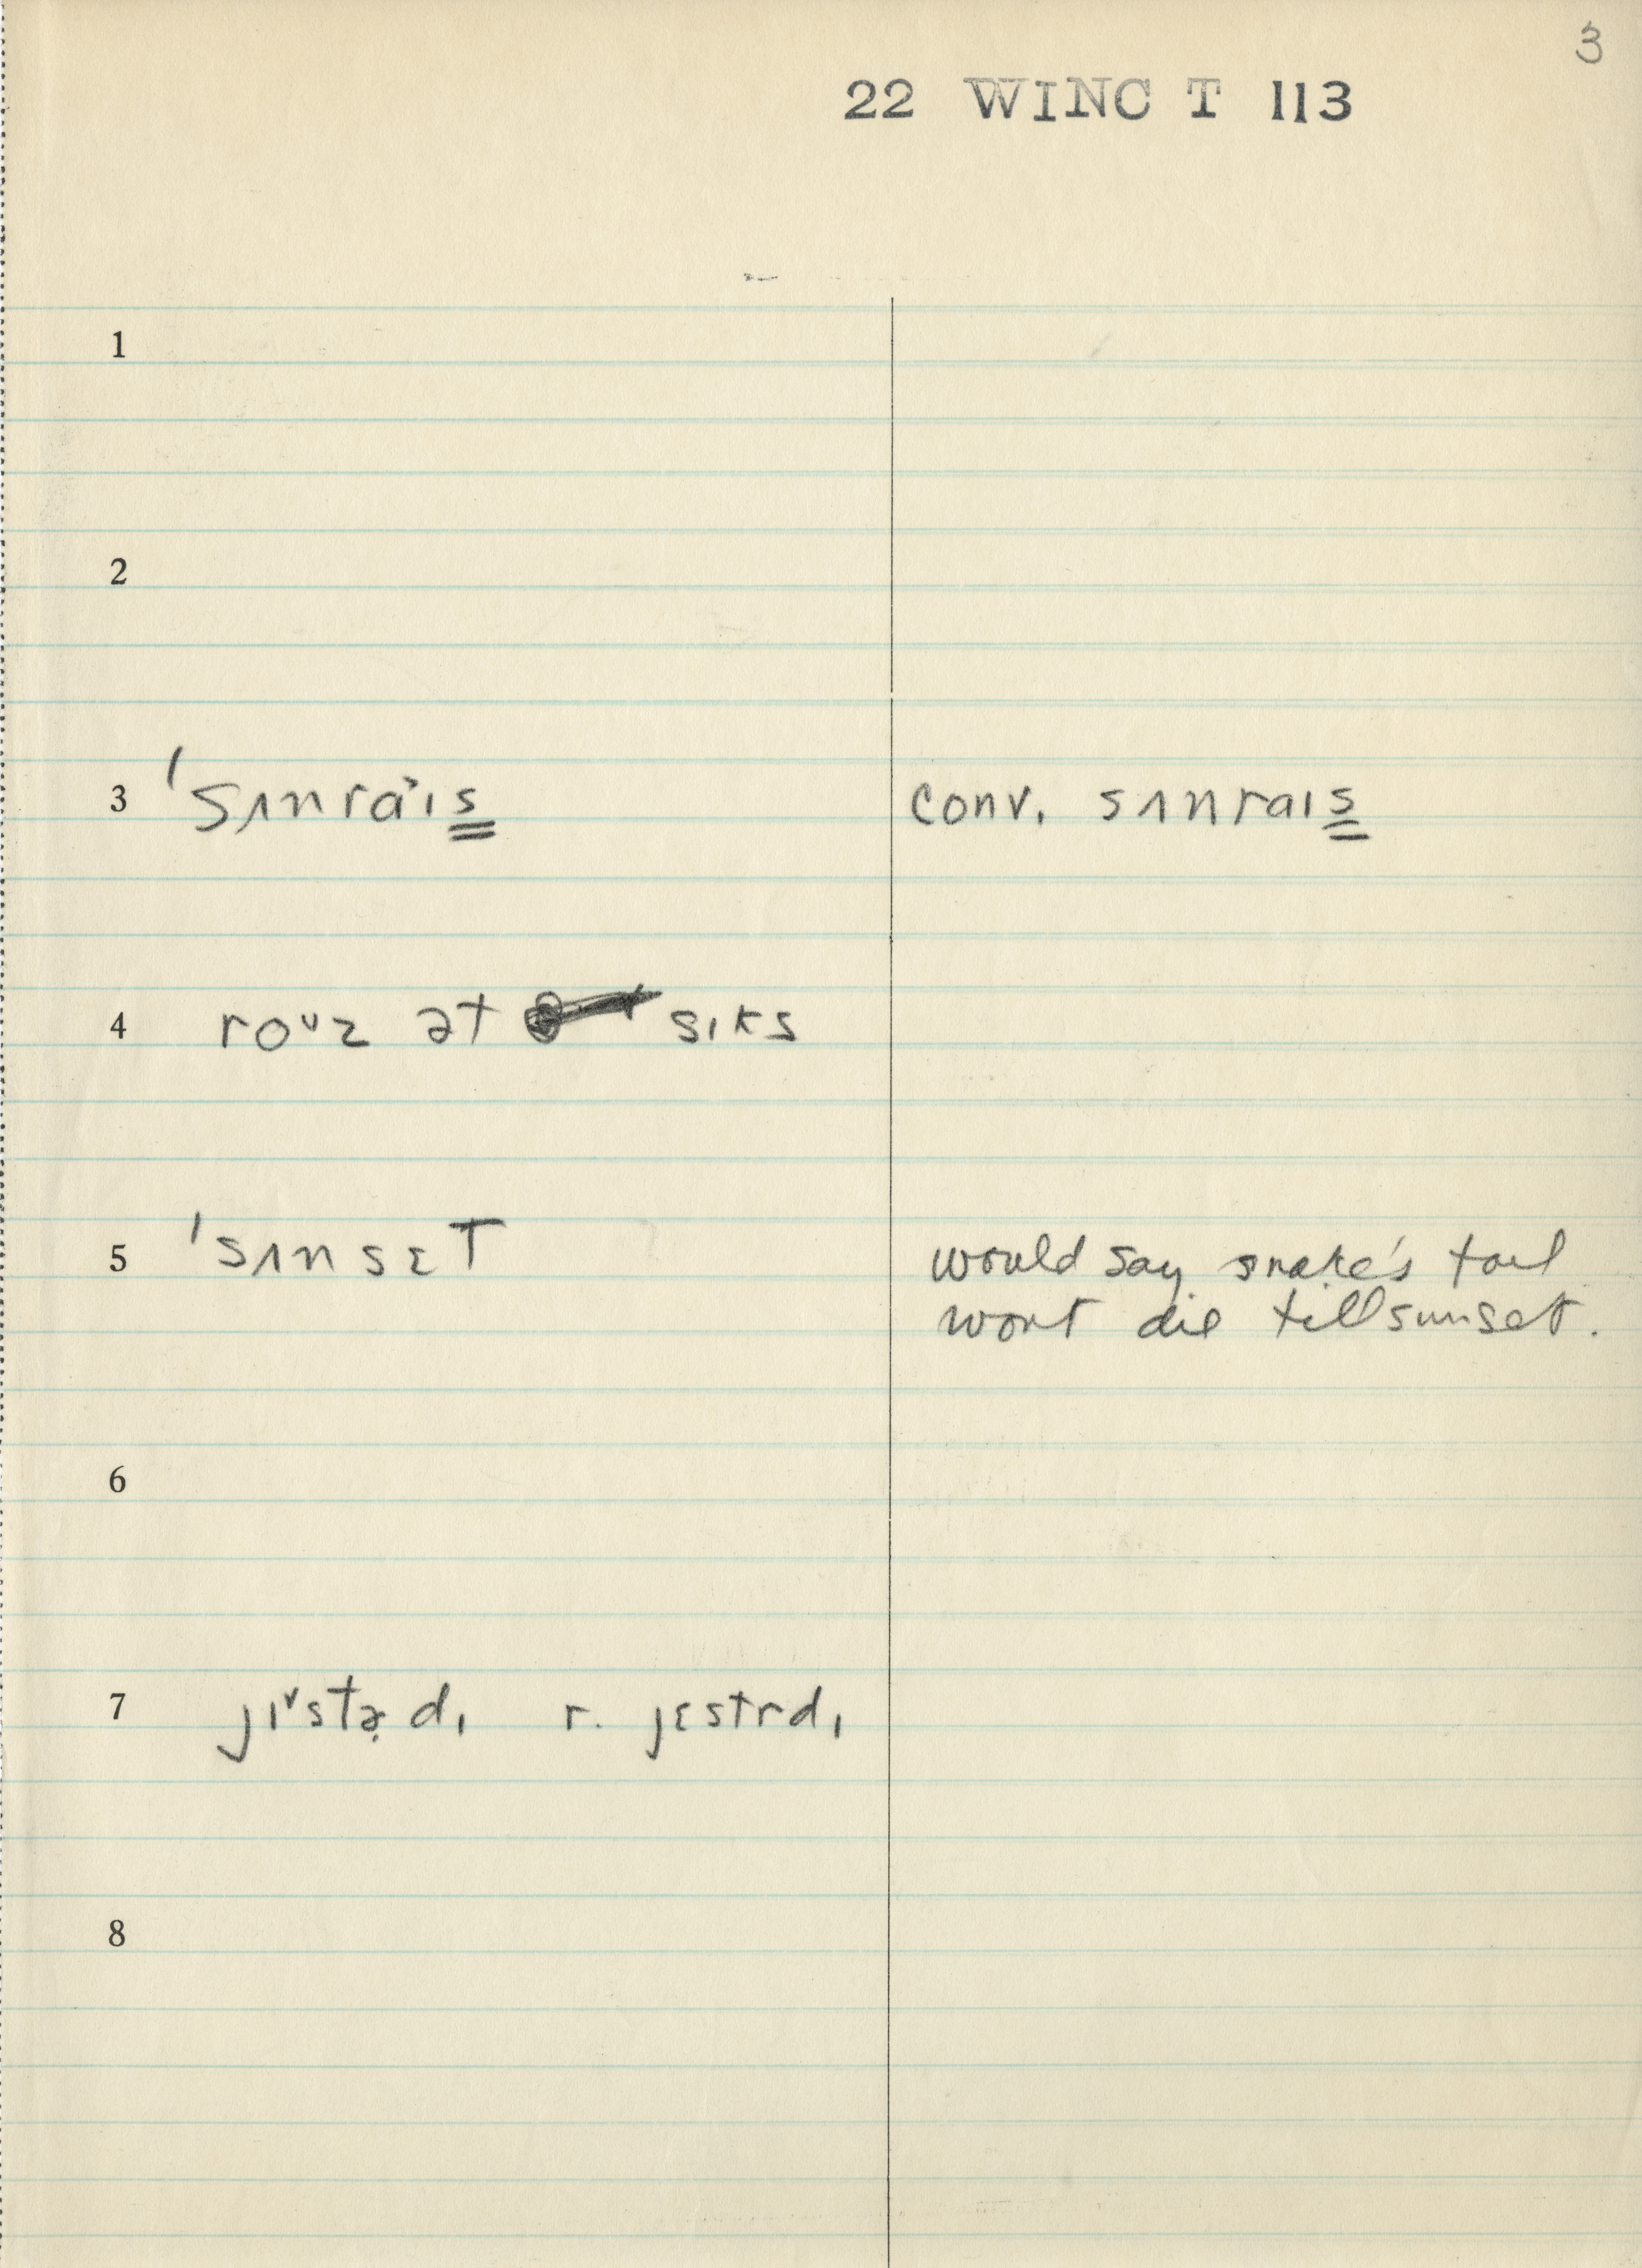 3
22 WINC T 113
1
2
3 ˈsʌnraɪs̳ conv. sʌnraɪs̳
4 roᴜz ət sɪks
5 ˈsʌnsɛT would say snake's tail
wont die till sunset.
6
7 jɪ˅stə̣dɪ r. jɛstrdɪ
8